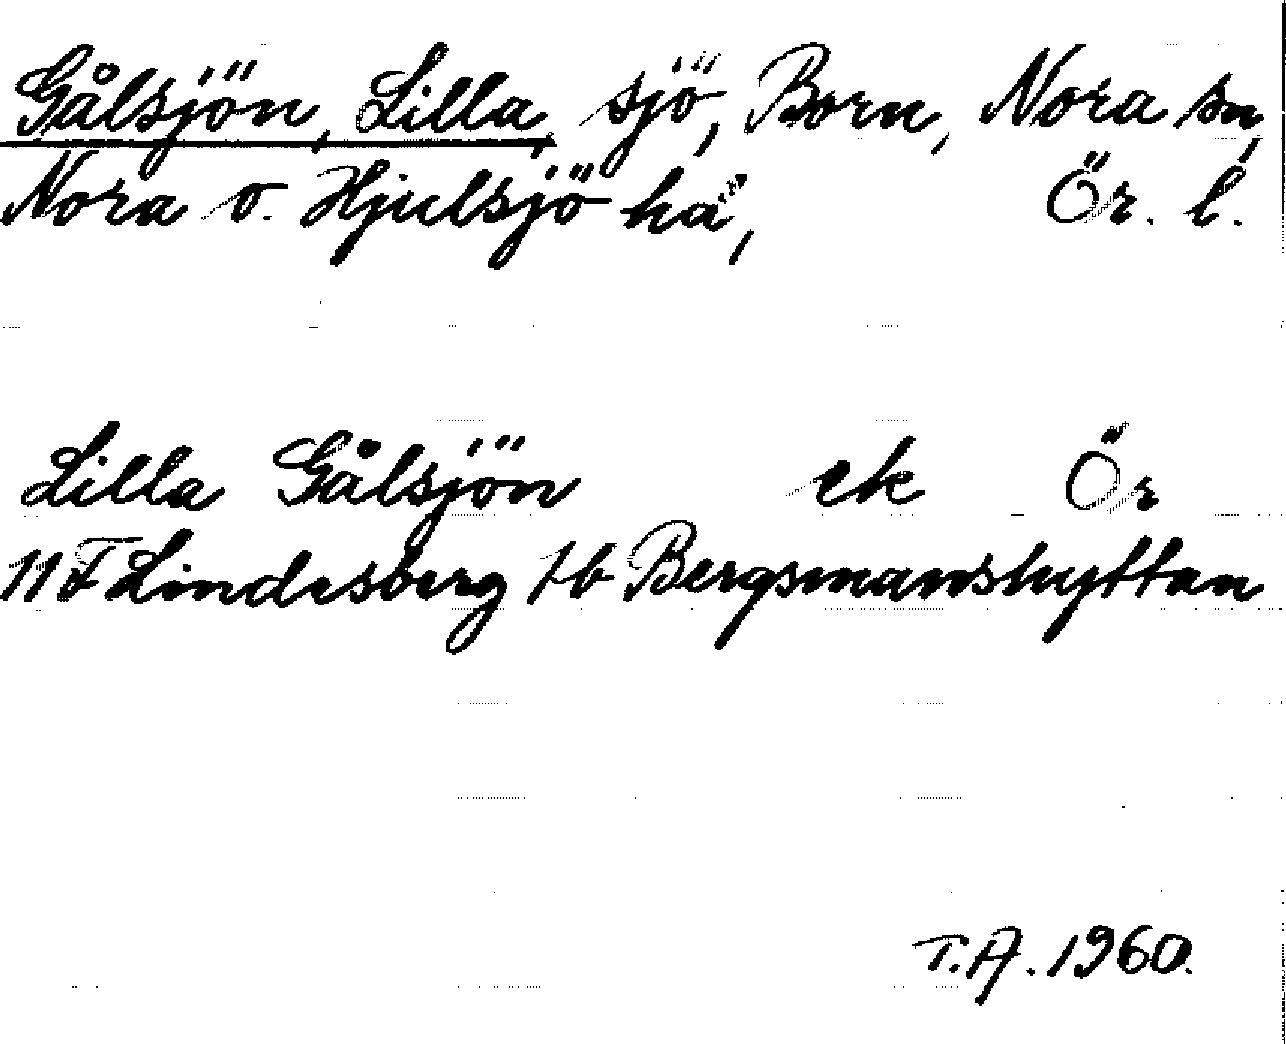 Gålsjön, Lilla, sjö, Born, Nora sn,
Nora o. Hjulsjö hä, Ör. l.
Lilla Gålsjön ek Ör
11 F Lindesberg 7b Bergsmanshyttan
T.A. 1960.